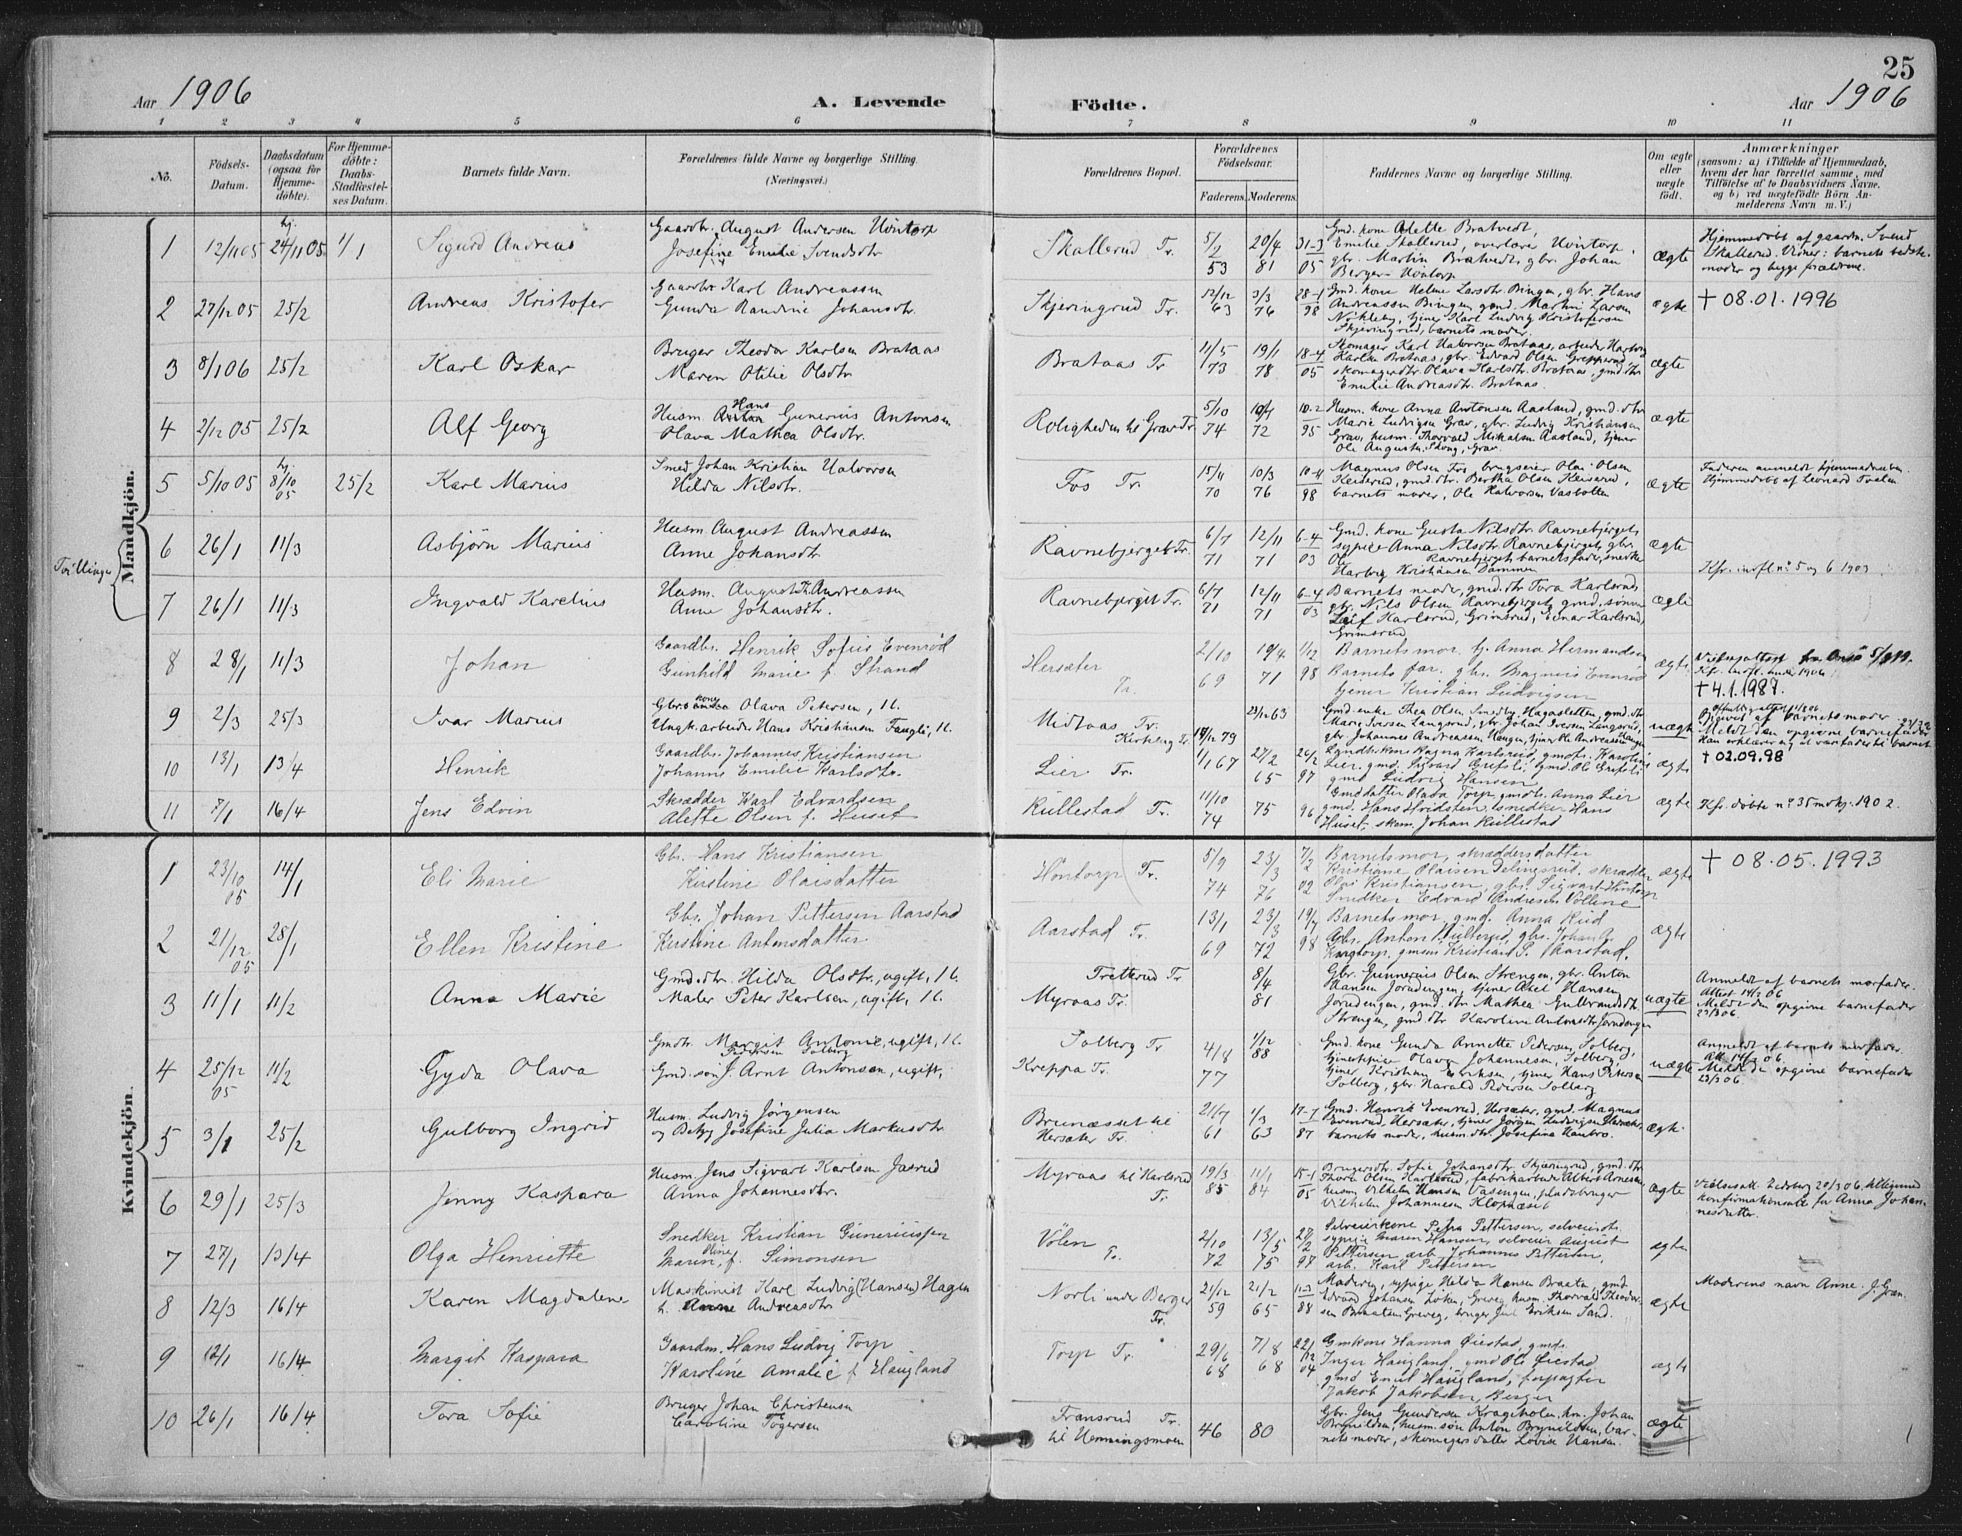 25
Aar 1906 A. Levende Födte. Aar 1906
1 2 3 4 5 6 7 8 9 10 11
No.
Födsels-Datum.
Daabsdatum (ogsaa for Hjemmedöbte).
For Hjemmedöbte: Daabs-Stadfæstelses Datum.
Barnets fulde Navn.
Forældrenes fulde Navne og borgerlige Stilling. (Næringsvei.)
Forældrenes Bopæl.
Forældrenes Födselsaar.
Faderens. Moderens.
Faddernes Navne og borgerlige Stilling.
Om ægte eller uægte födt.
Anmærkninger
(saasom: a) i Tilfælde af Hjemmedaab,
hvem der har forrettet samme, med
Tilföielse af to Daabsvidners Navne,
og b) ved uægtefödte Börn Anmelderens Navn m. V.)
Mandkjön.
1 12/11 05 hj. 24/11 05 1/1 Sigurd Andreas
Gaardbr. August Andersen Hvintorp
Josefine Emilie Svendsdtr
Skallerud Tr. 5/2 53 20/4 81 31-3 05
Gmd. kone Alette Bratvedt,
Emilie Skallerud, overlære Hvintorp
gbr. Martin Bratvedt, gbr. Johan
Berger-Hvintorp
ægte
Hjemmedöbt af gaardm. Svend
Skallerud. Vidner: barnets bedste-
moder og begge forældrene.
2 27/12 05 25/2 Andreas Kristofer
Gaardbr Karl Andreassen
Gunda Randine Johansdtr.
Skjeringrud Tr. 12/12 63 3/3 76 28-1 98
Gmd. kone Helene Larsdtr Bingen, gbr. Hans
Andreassen Bingen, gmd. Martin Larsen
Nökleby, tjener Karl Ludvig Kristofersen
Skjeringrud, barnets moder.
ægte † 08.01.1996
3 8/1 06 25/2 Karl Oskar
Bruger Theodor Karlsen Brataas
Maren Otilie Olsdtr
Brataas Tr 11/5 73 19/1 78 18-4 05
Skomager Karl Halvorsen Brataas, arbeider Hartvig
Karlsen Brataas, gbr. Edvard Olsen Grepperud
skomagerdtr. Olava Karlsdtr Brataas, gmd. dtr
Emilie Andreasdtr. Brataas.
ægte
4 2/12 05 25/2 Alf Georg
Husm. Hans Gunerius Antonsen
Olava Mathea Olsdtr.
Roligheden til Grav Tr. 5/10 74 10/4 72 10-2 95
Husm. kone Anna Antonsen Aasland, gmd. dtr
Marie Ludvigsen Grav, gbr. Ludvig Kristiansen
Grav, husm. Thorvald Mikalsen Aasland, tjener
Ole Augustin Skong, Grav.
ægte
5 5/10 05 hj. 8/10 05 25/2 Karl Marius
Smed Johan Kristian Halvorsen
Hilda Nilsdtr.
Fos Tr. 15/11 70 10/3 76 10-4 98
Magnus Olsen Fos, brugseier Olai Olsen
Keiserud, gmd. dtr. Bertha Olsen Keiserud,
barnets moder, Ole Halvorsen Vasbotten
ægte
Faderen anmeldt hjemmedaaben.
Hjemmedöbt af Leonard Tvelen
Tvillinger
6 26/1 11/3 Asbjörn Marius
Husm August Andreassen
Anne Johansdtr
Ravnebjerget Tr. 6/7 71 12/11 71 6-4 03
Gmd. kone Gusta Nilsdtr Ravnebjerget,
sypige Anna Nilsdtr. Ravnebjerget, gbr.
Ole Ravnebjerget, barnets fader, snedker
Hartvig Kristiansen Dammen
ægte
Kfr. indfl. no 5 og 6 1903.
7 26/1 11/3 Ingvald Karelius
Husm. August Th. Andreassen
Anne Johansdtr.
Ravnebjerget Tr. 6/7 71 12/11 71 6-4 03
Barnets moder, gmd. dtr Tora Karlsrud,
gbr. Nils Olsen Ravnebjerget, gmd. sönner
Leif Karlsrud, Grimsrud, Einar Karlsrud,
Grimsrud
ægte
8 28/1 11/3 Johan
Gaardbr. Henrik Sofus Evenröd
Gunhild Marie f. Strand
Hersæter Tr. 2/10 69 19/4 71 1/12 98
Barnets mor. tj. Anna Hermandsen
Barnets far. gbr. Magnus Evenröd
tjener Kristian Ludvigsen
ægte
† 4.1.1987.
9 2/3 25/3 Ivar Marius
Gbr. kone Olava Petersen, 1l.
Ungk. arbeider Hans Kristiansen Fangli, 1l.
Midtaas Tr. Kirkeng Tr. 14/12 79 23/12 63
Gmd. enke Thea Olsen Smedby Hagasletten, gmd. dtr
Marie Iversen Langsrud, gbr. Johan Iversen Langsrud,
gbr. Johannes Andreassen Haugen, tjener Th. Andreassen Haugen
uægte
Meldt den opgivne barnefader 23/3 06
10 13/1 13/4 Henrik
Gaardbr. Johannes Kristiansen
Johanne Emilie Karlsdtr.
Lier Tr. 1/1 67 27/2 65 26/2 97
Lier. gmd. Sigvard Grefsli, gmd. Ole Grefsli
gmd Ludvig Hansen
ægte † 02.09.98
11 7/1 16/4 Jens Edvin
Skrædder Karl Edvardsen
Alette Olsen f. Huset
Kullestad Tr. 11/10 74 75 96
Gmd datter Olava Torp, gmdtr. Anna Lier
gmd. Hans Hvidsten, snedker Hans
Huset, skom. Johan Kullestad
ægte Kfr. döbte no 35 mdkj. 1902.
Kvindekjön.
1 23/10 05 14/1 Eli Marie
Gbr. Hans Kristiansen
Kirstine Olaisdatter
Höntorp Tr. 5/9 74 23/3 76 7/2 02
Barnets mor, skræddersdatter
Kristiane Olaisen Telingsrud, skrædder
Olai Kristiansen, gbr. Sigvart Höntorp
Snedker Edvard Andresen Völlene
ægte † 08.05.1993
2 21/12 05 28/1 Ellen Kristine
Gbr. Johan Pettersen Aarstad
Kirstine Antonsdatter
Aarstad Tr. 13/1 69 23/3 72 19/7 98
Barnets mor, gmd. Anna Rud
Gbr. Anton Hulterud, gbr. Johan A.
Kragtorp, gmsøn Kristian P. Aarstad.
ægte
3 11/1 11/2 Anna Marie
Gmd. dtr. Hilda Olsdtr., ugift, 1l.
Maler Peter Karlsen, ugift, 1l.
Tretterud Tr Myraas Tr. 8/4 81
Gbr. Gunnerius Olsen Strengen, gbr. Anton
Hansen Jorudengen, tjener Axel Hansen
Jorudengen, gmd. dtr Mathea Gulbrandsdtr.
Strengen, gmd. dtr Karoline Antonsdtr Jorudengen
uægte
Anmeldt af barnets morfader.
Attest 14/2 06
Meldt den opgivne barnefader
23/3 06.
4 25/12 05 11/2 Gyda Olava
Gmdtr Margit Antonie Pedersen Solberg, ugift, 1l.
Gmd. søn J. Arnt Antonsen, ugift,
Solberg Tr Kreppa Tr. 4/8 77 1/12 88
Gmd. kone Gunda Annette Pedersen, Solberg,
tjenestepige Olava Johannesen, Solberg,
tjener Kristian Eriksen, tjener Hans Petersen
Solberg, gbr. Harald Pedersen Solberg
uægte
Anmeldt af barnets morfader
Att. 14/2 06.
Meldt den opgivne barnefader
23/3 06
5 3/1 25/2 Gulborg Ingrid
Husm. Ludvig Jörgensen
og Betzy Josefine Julia Markusdtr
Brunæsset til Hersæter Tr. 21/7 61 1/3 63 17-7 87
Gmd. Henrik Evenröd, Hersæter, gmd. Magnus
Evenröd, Hersæter, tjener Jörgen Ludvigsen Hersæter,
barnets moder, husm. dtr. Josefine Haabro.
ægte
6 29/1 25/3 Jenny Kaspara
Husm. Jens Sigvart Karlsen Jasrud
Anna Johannesdtr.
Myraas til Karlsrud Tr. 19/3 85 11/1 84 15-1 05
Brugersdtr. Sofie Johansdtr. Skjæringrud, gmd. dtr
Thora Olsen Karlsrud, fabrikarbeider Albert Arnesen
husm. Vilhelm Hansen Vasengen, pladsbruger
Vilhelm Johannesen Klopnæset
ægte
Vielsesatt. Eidsberg 20/3 06. tilligemed
konfirmationsatt. for Anna Johan-
nesdatter.
7 27/1 13/4 Olga Henriette
Snedker Kristian Guneriussen
Marin Oline, f. Simonsen
Völen Tr. 2/10 72 13/5 75 27/2 97
Selveierkone Petra Pettersen, selveierdtr.
sypige Maren Hansen, selveier August
Pettersen, arb. Johannes Pettersen,
arb. Karl Pettersen
ægte
8 12/3 16/4 Karen Magdalene
Maskinist Karl Ludvig (Hansen) Hagen
h. Anne Andreasdtr
Norli under Berger Tr. 21/12 59 21/2 65 11-3 88
Moderen, sypige Helda Hansen Braaten, gmd.
Edvard Johansen Löken, Greveg, husm. Thorvald Theodor-
sen Braaten, Greveg, bruger Jul. Eriksen Sand.
ægte Moderens navn Anne. J. Gran.
9 12/1 16/4 Margit Kaspara
Gaardm. Hans Ludvig Torp
Karoline Amalie f. Haugland
Torp Tr. 29/6 68 7/8 68 22/12 04
Gmkone Hanna Øiestad, gmdtr.
Inger Haugland, gmd Ole Øiestad
gmd Emil Haugland, forpagter
Jakob Jakobsen, Berger
ægte
10 26/1 16/4 Tora Sofie
Bruger Johan Christensen
Caroline Togersen
Fransrud Tr. til Henningsmoen 46 80
Gbr. Jens Gundersen Krageholen, hm. Johan
Brynildsen, husm. søn Anton Brynildsen, bar-
nets moder, skomagers datter Lovise Hansen.
ægte